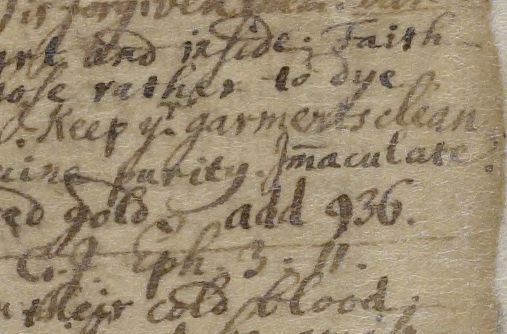 is forgiven
and inside; Faith
rather to dye
Keep yr garments clean
purity. Im̄aculate
gold. add 936.
C.J Eph. 3. 11.
their cold blood;